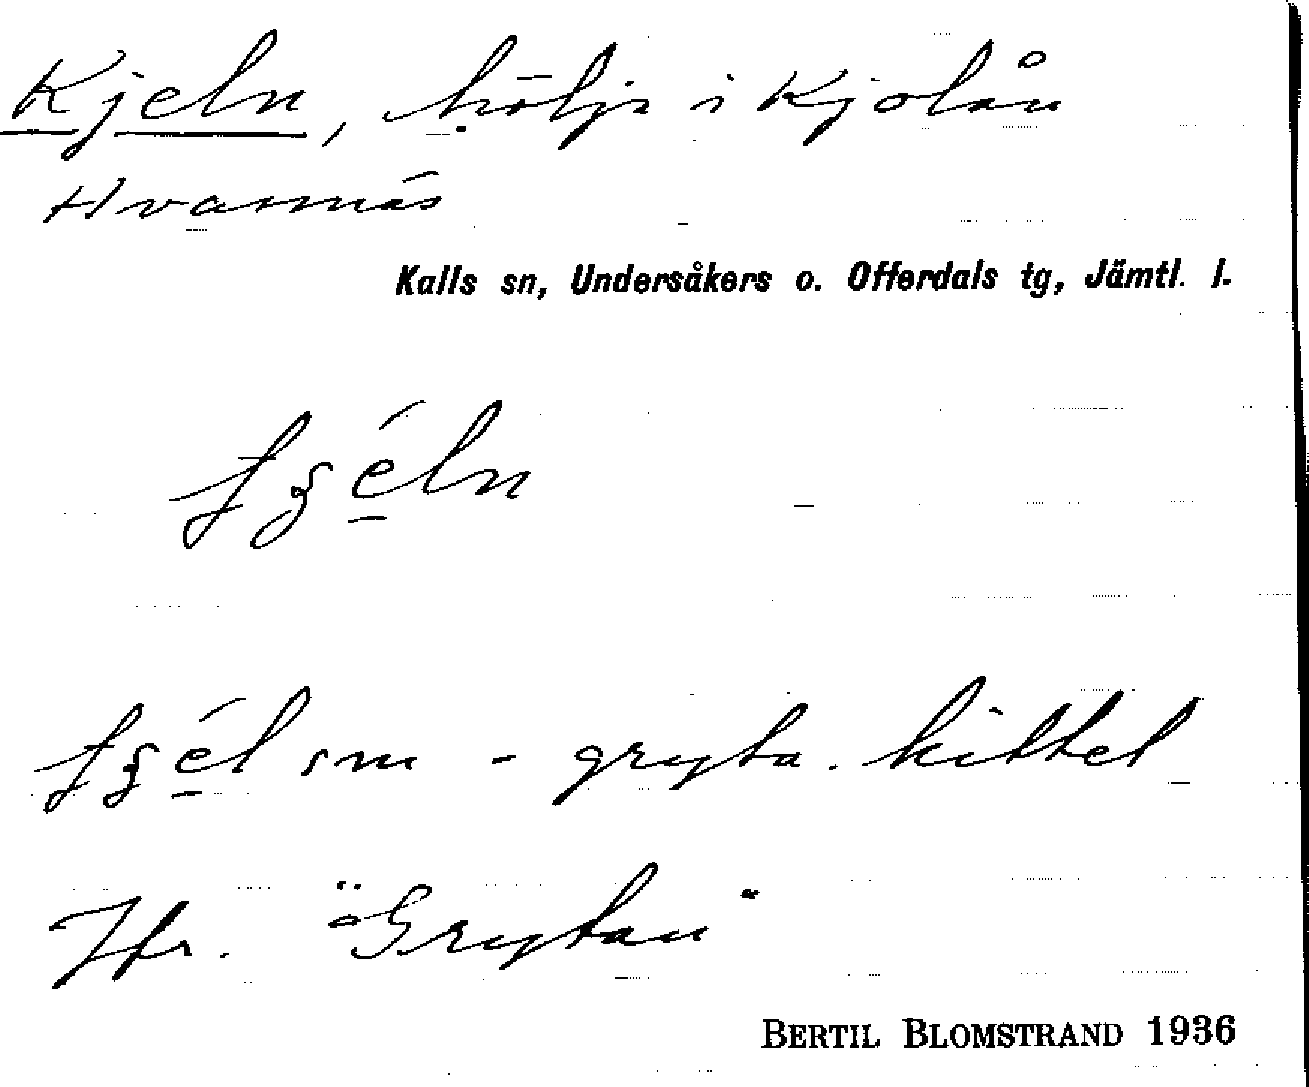 Kjeln, hölje i Kjolån
Hvarnnäs
Kalls sn, Undersåkers o. Offerdals tg, Jämtl. l.
sm - gryta. kittel
Jfr. "Grytan"
BERTIL BLOMSTRAND 1936